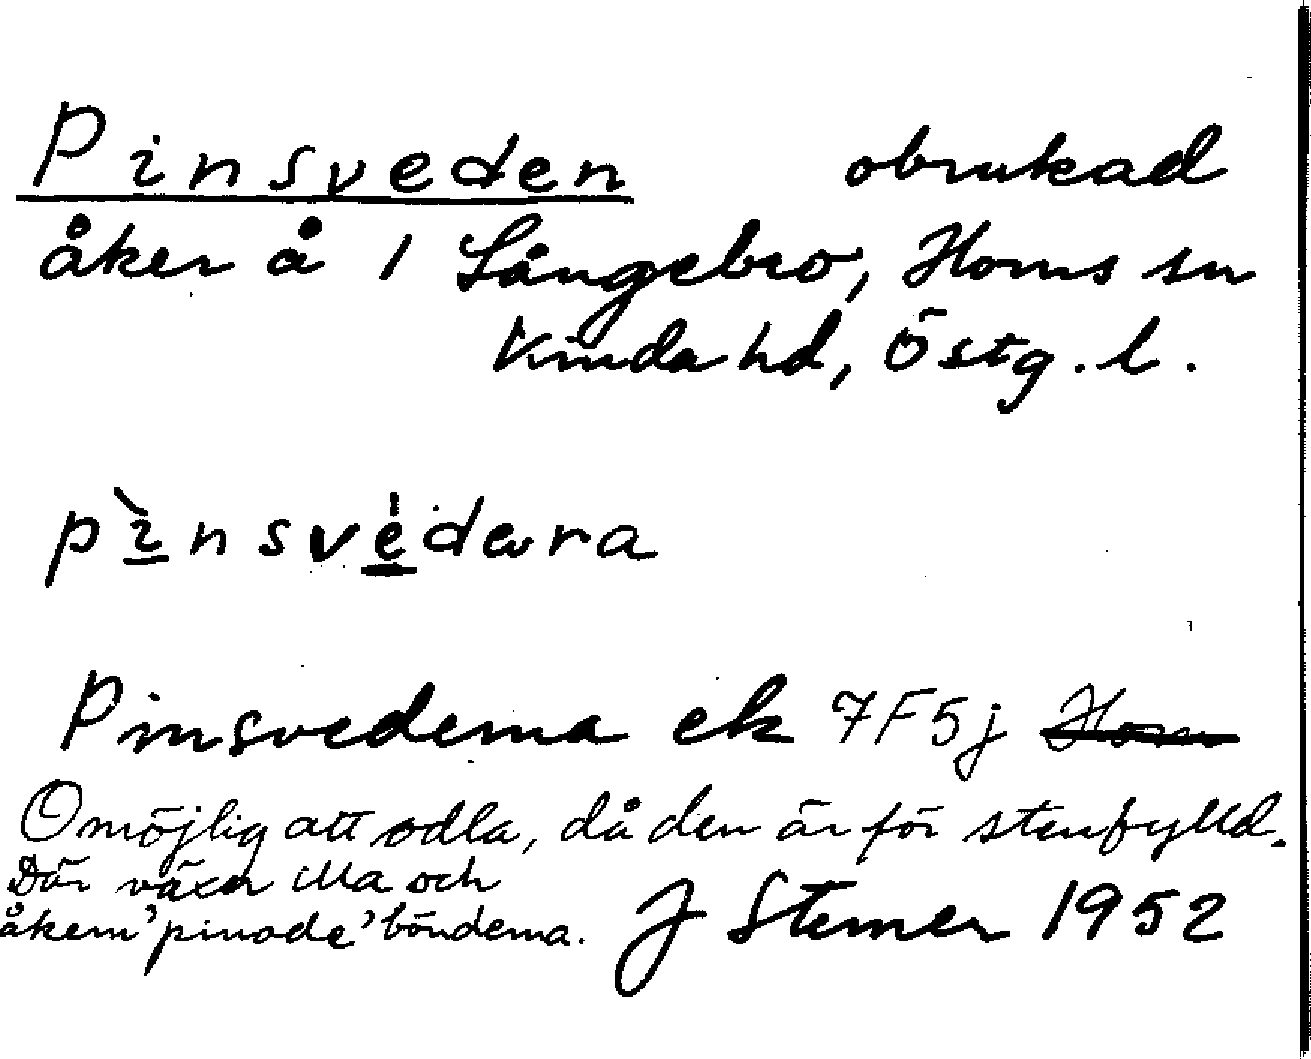 Pinsveden obrukad
åker å 1 Långebro, Horns sn
Kinda hd, Östg. l.
pìnsvédæra
Pinsvederna ek 7F5j Horn
Omöjlig att odla, då den är för stenfylld.
Där växer illa och
åkern 'pinade' bönderna. J Sterner 1952